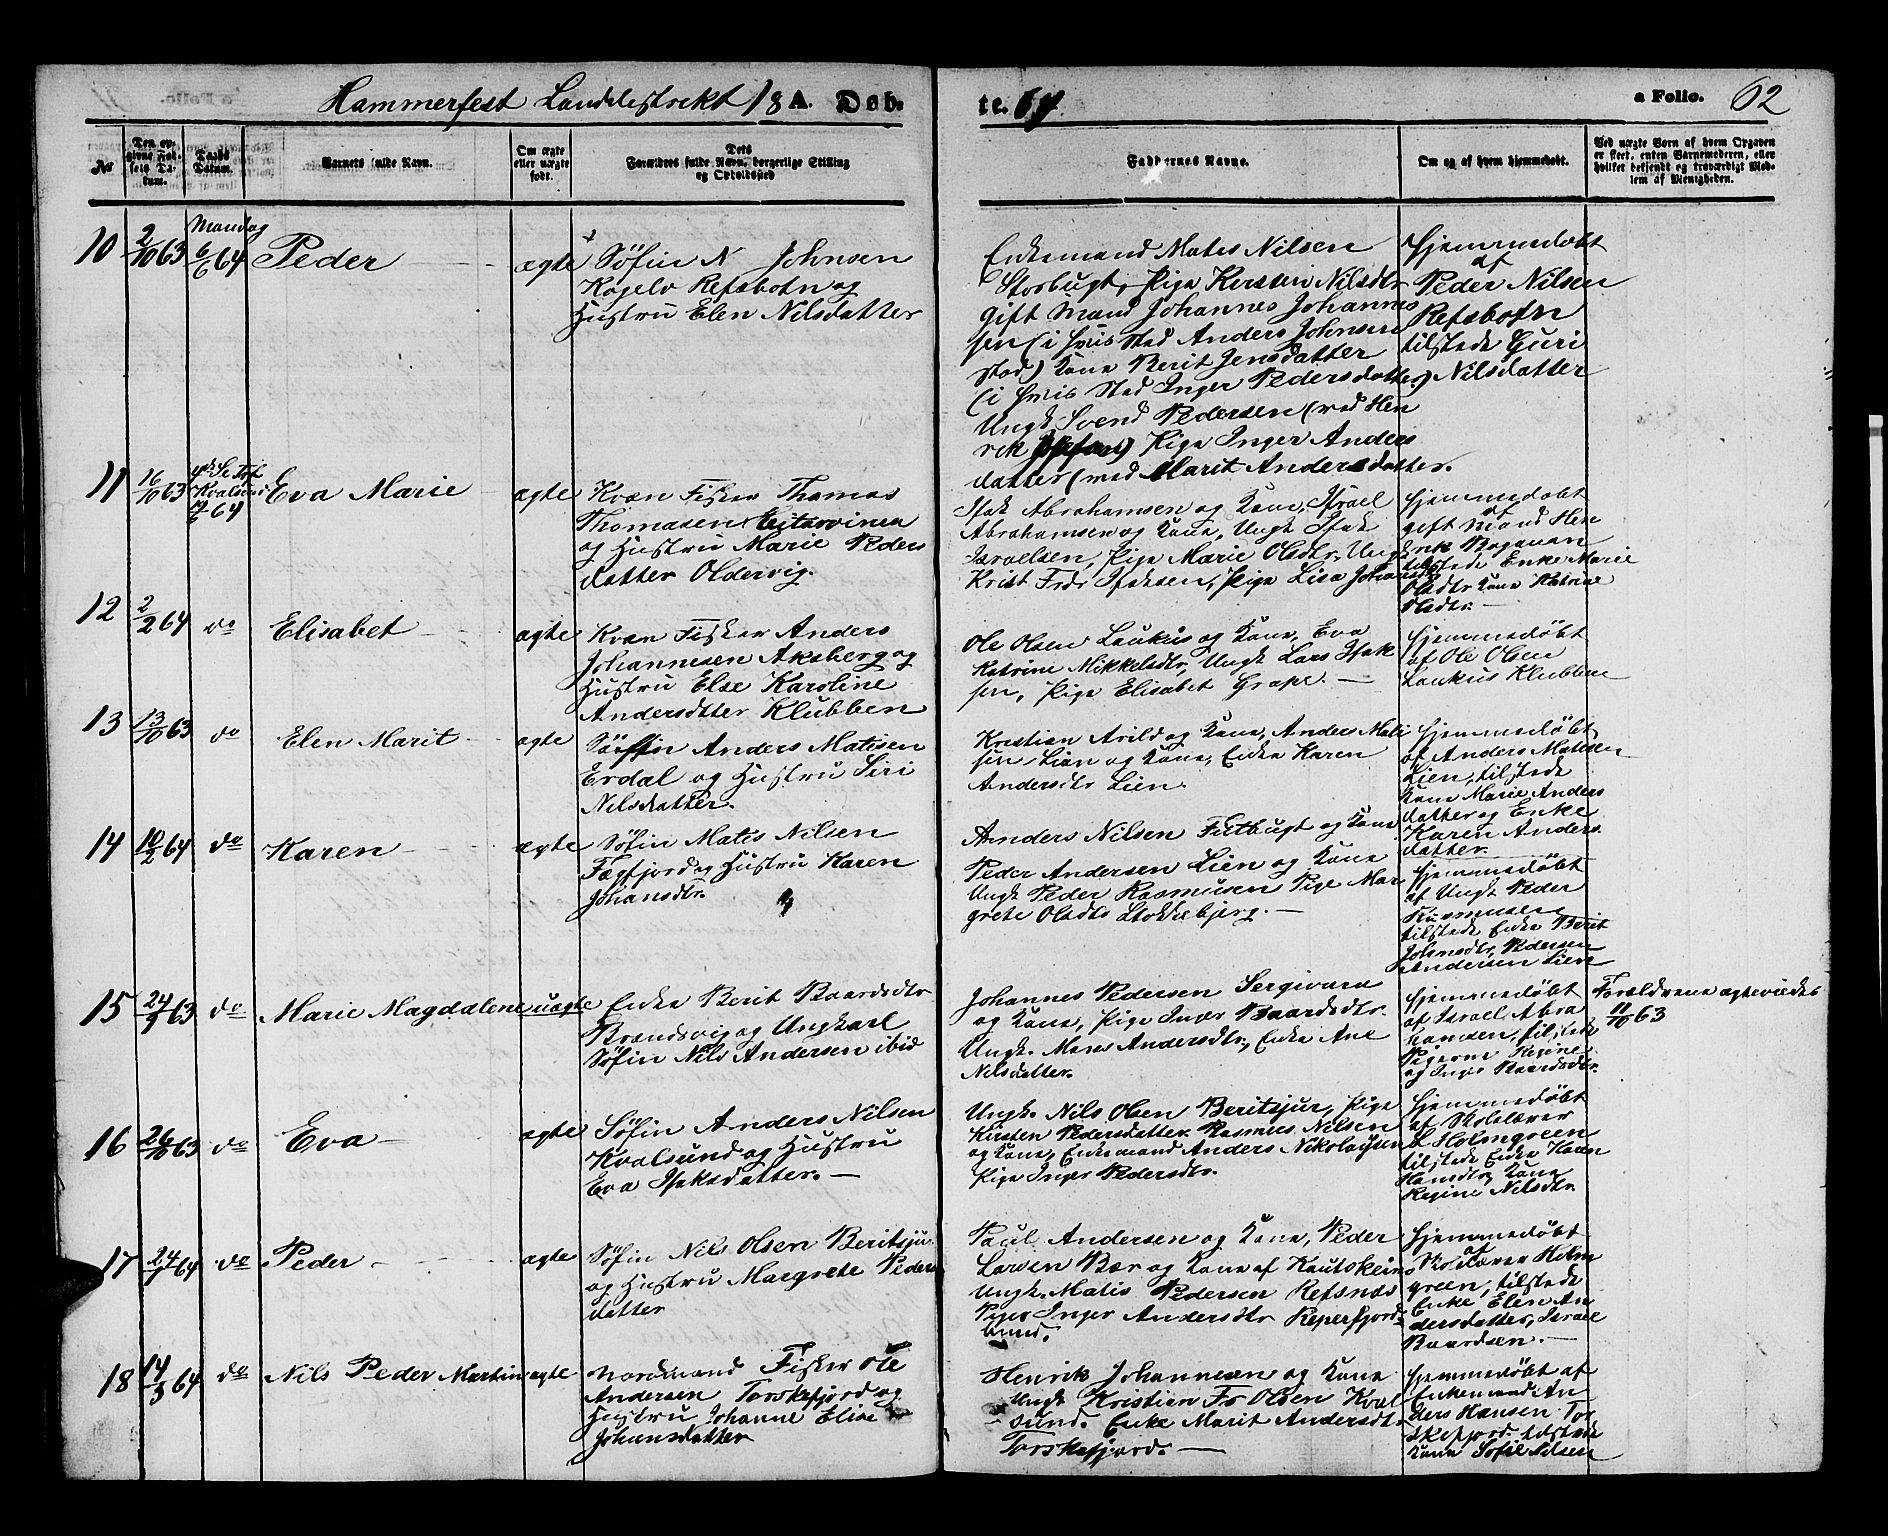 Hammerfest Landdistrikt 18 A. Døb-
te. 64.
a Folio. 62
No
Den opgivne Fødsels Datum.
Daabs Datum.
Barnets fulde Navn.
Om ægte eller uægte født.
Dets Forældres fulde Navn, borgerlige Stilling og Opholdssted
Faddernes Navne.
Om og af hvem hjemmedøbt.
Ved uægte Børn af hvem Opgaven er skeet, enten Barnemoderen, eller hvilket bekjendt og troværdigt Medlem af Menigheden.
10 2/10 63 Mandag 6/6 64 Peder ægte
Søfin N Johnsen
Kogelv Refsbotn og
Hustru Elen Nilsdatter
Enkemand Mates Nilsen
Storbugt, Pige Kersten Nilsdtr
gift Mand Johannes Johannes
sen (i hvis Sted Anders Johnsen
stod) Kone Berit Jensdatter
(i hvis Sted Inger Pedersdatter)
Ungk Svend Pedersen (ved Hen
rik) Pige Inger Anders
datter (ved Marit Andersdatter.
Hjemmedøbt
af
Peder Nilsen
Refsbotn
tilstede Guri
Nilsdatter
11 16/10 63 Kvalsund 64 Eva Marie ægte
Kvæn Fisker Thomas
Thomasen
og Hustru Marie Peders
datter Oldervig.
Isak Abrahamsen og Kone, Israel
Abrahamsen og Kone, Ungk Isak
Israelsen, Pige Marie Olsdtr, Ungk
Krist Fredr Isaksen, Pige Lisa
Hjemmedøbt
af
gift Mand Hen
rik
tilstede Enke Marie
Olsdtr Kone Katrine
Olsdtr.
12 2/2 64 do Elisabet ægte
Kvæn Fisker Anders
Johannesen Aksberg og
Hustru Else Karoline
Andersdtter Klubben
Ole Olsen Laukus og Kone, Eva
Katrine Mikkelsdtr, Ungk Lars Isak
sen, Pige Elisabet Grape.
Hjemmedøbt
af Ole Olsen
Laukus Klubben
13 13/10 63 do Elen Marit ægte
Søfin Anders Matisen
Erdal og Hustru Siri
Nilsdatter.
Kristian Arild og Kone, Anders Mati
sen Lien og Kone, Enke Karen
Andersdtr Lien.
Hjemmedøbt
af Anders Matisen
Lien, tilstede
Kone Marie Anders
datter og Enke
Karen Anders
datter.
14 10/2 64 do Karen ægte
Søfin Matis Nilsen
Fægfjord og Hustru Karen
Johansdtr.
Anders Nilsen Futbugt og Kone
Peder Andersen Lien og Kone
Ungk Peder Rasmusen Pige Mar
grete Olsdtr Stokkebjerg.
Hjemmedøbt
af Ungk Peder
Rasmusen
tilstede Enke Berit
Johnsdtr, Pedersen
Andersen Lien
15 24/9 63 do Marie Magdalene uægte
Enke Berit Baardsdtr
Brændsvig og Ungkarl
Søfin Nils Andersen ibid
Johannes Pedersen Sergivara
og Kone, Pige Inger Baardsdtr.
Ungk. Mons Andersdtr, Enke Ane
Nilsdatter.
Hjemmedøbt
af Israel Abra
hamsen, tilstede
Pigerne Regine
og Inger Baardsdtr.
Forældrene ægteviedes
11/10 63
16 26/10 63 do Eva ægte
Søfin Anders Nilsen
Kvalsund og Hustru
Eva Isaksdatter.
Ungk. Nils Olsen Beritsjur, Pige
Kirsten Pedersdatter. Rasmus Nilsen
og Kone, Enkemand Anders Nikolaysen
Pige Inger Pedersdtr.
Hjemmedøbt
af Skolelærer
L Holmgreen
tilstede Enke Karen
Hansdtr, Kone
Regine Nilsdtr.
17 24/1 64 do Peder ægte
Søfin Nils Olsen Beritsju
og Hustru Margrete Peders
datter
Paul Andersen og Kone, Peder
Larsen Bær og Kone af Kautokeino
Ungk. Matis Pedersen Refsnæs
Pige Inger Andersdtr Reperfjord-
bund.
Hjemmedøbt
af
Skolelærer Holm
green, tilstede
Enke Elen An
dersdatter, Israel
Baardsen.
18 14/3 64 do Nils Peder Martin ægte
Nordmand Fisker Ole
Andersen Torskefjord og
Hustru Johanne Elise
Johansdatter
Henrik Johannesen og Kone
Ungk Kristian Fr Olsen Kval
sund. Enke Marit Andersdtr
Torskefjord.
Hjemmedøbt af
Enkemand An
ders Hansen Tor
skefjord. tilstede
Kone Sofie Nilsen